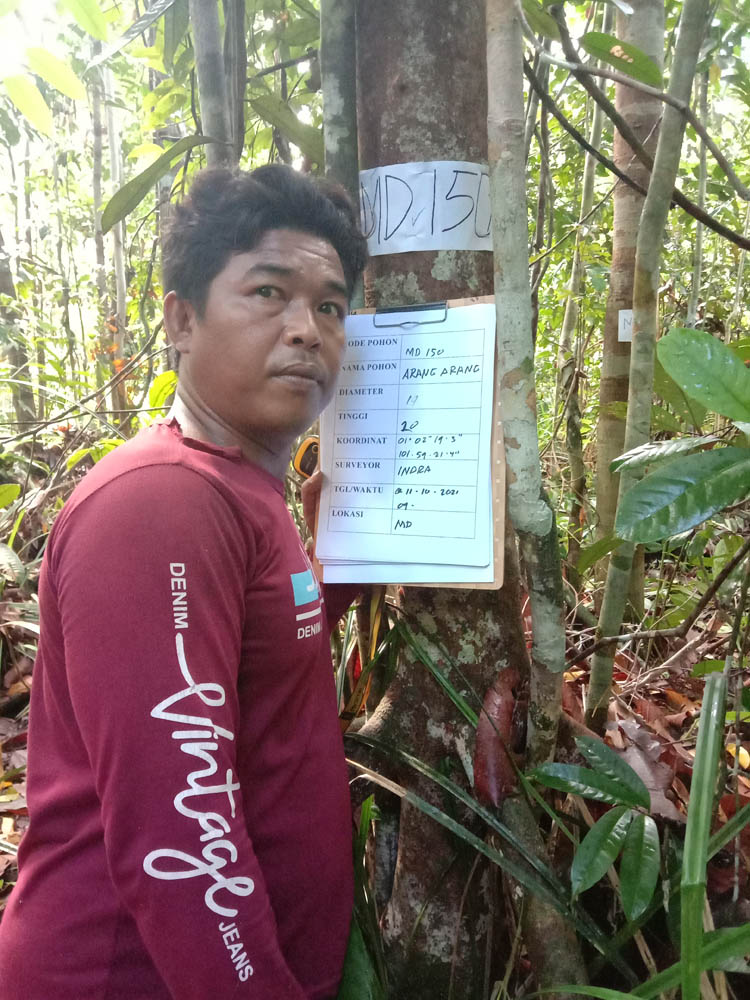 MD.150
KODE POHON MD 150
NAMA POHON ARANG ARANG
DIAMETER
TINGGI 20
KOORDINAT 01° 02" 19.3"
101.59.21.4"
SURVEYOR INDRA
TGL/WAKTU 11-10-2021
09.
LOKASI MD
N
DENIM
DENIM
Vintage
JEANS